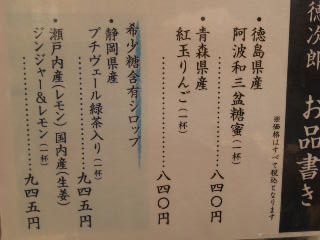 徳次郎 お品書き
※価格はすべて税込となります
・徳島県産
阿波和三盆糖蜜(一杯)
八四〇円
・青森県産
紅玉りんご(一杯)
八四〇円
希少糖含有シロップ
・静岡県産
プチヴェール緑茶入り(一杯)
九四五円
・瀬戸内産(レモン)国内産(生姜)
ジンジャー&レモン(一杯)
九四五円